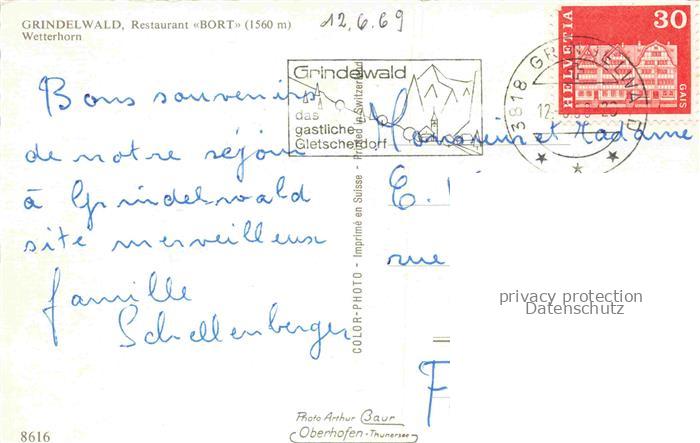 GRINDELWALD, Restaurant «BORT» (1560 m)
Wetterhorn
12.6.69
Grindelwald
das
gastliche
Gletscherdorf
3818 GRINDELWALD
12.
HELVETIA
30
GAIS
Bons souvenirs
de notre séjour
à Grindelwald
site merveilleux
famille
Schellenberger
COLOR-PHOTO - Imprimé en Suisse - Printed in Switzerland
Monsieur et Madame
E.
rue
F
privacy protection
Datenschutz
Photo Arthur Baur
Oberhofen-Thunersee
8616